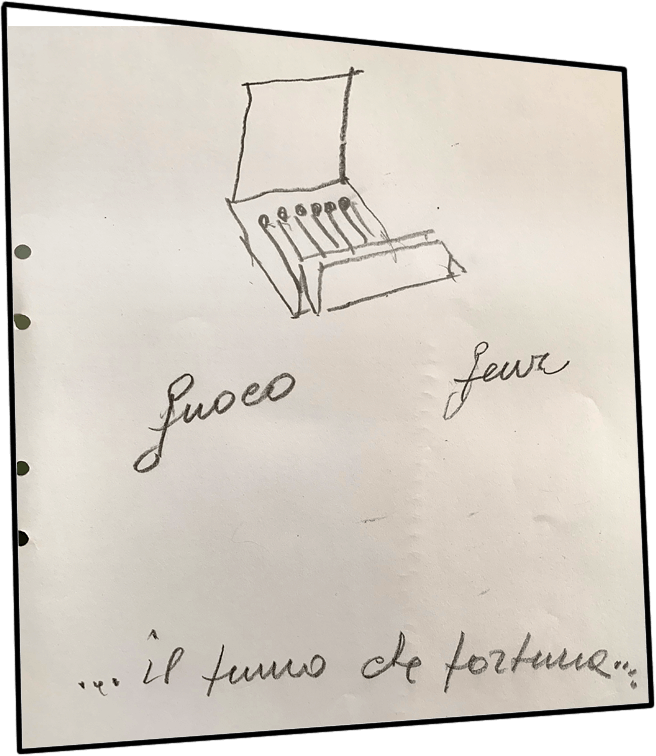 fuoco feur
... il fumo de fortuna ...